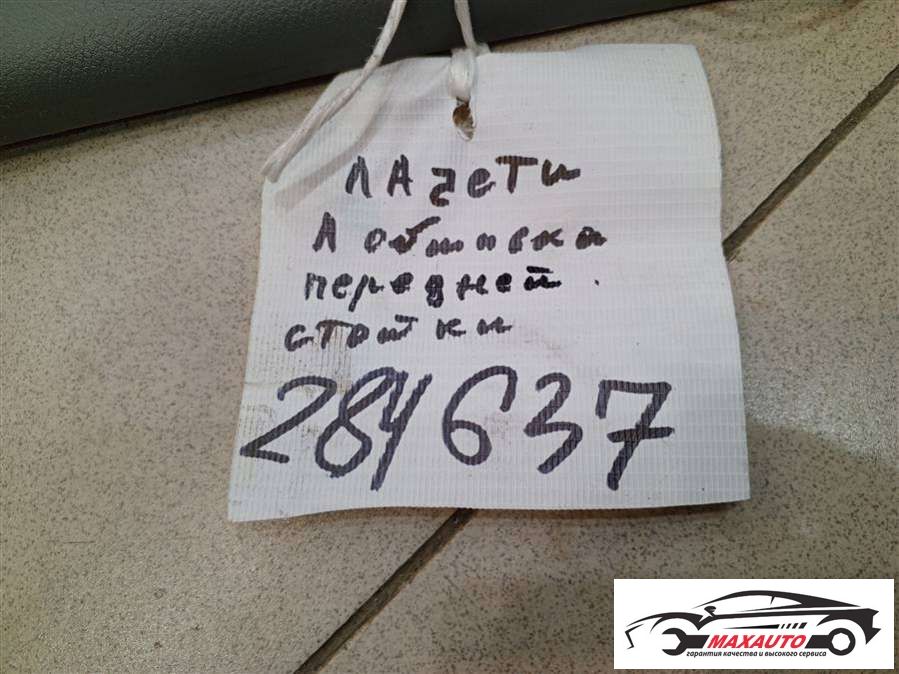 ЛАЧЕТИ
Л обшивка
передней
стойки
284637
MAXAUTO
гарантия качества и высокого сервиса